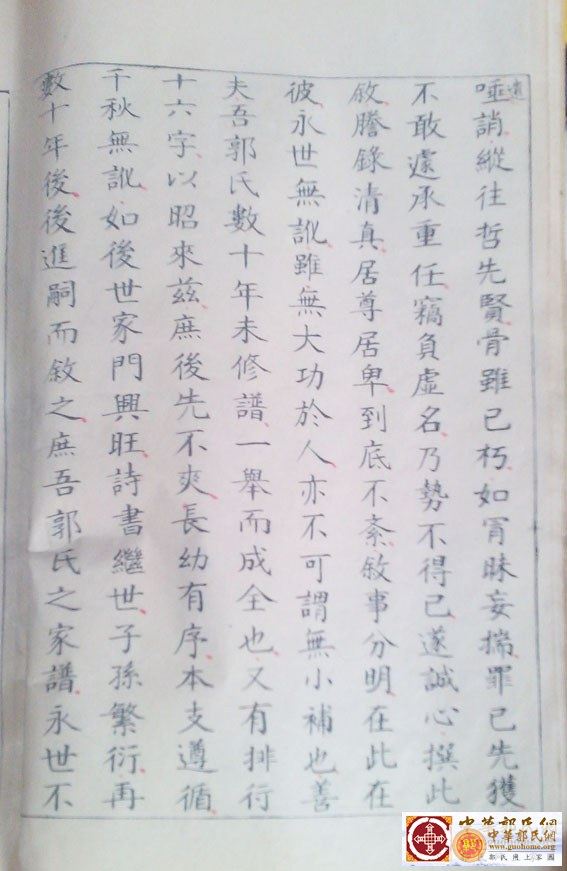 遺唾誚縱往哲先賢骨雖已朽如冐昧妄揣罪已先獲
不敢遽承重任竊負虛名乃勢不得已遂誠心撰此
敘謄錄清真居尊居卑到底不紊敘事分明在此在
彼永世無訛雖無大功於人亦不可謂無小補也善
夫吾郭氏數十年未修譜一舉而成全也又有排行
十六字以昭來茲庶後先不爽長幼有序本支遵循
千秋無訛如後世家門興旺詩書繼世子孫繁衍再
數十年後後進嗣而敘之庶吾郭氏之家譜永世不
中華郭氏網
中華郭氏網
www.guohome.org
郭氏網上家園